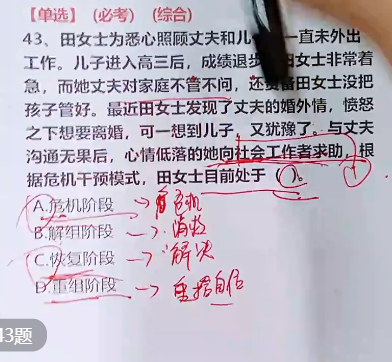 【单选】（必考）（综合）
43、田女士为悉心照顾丈夫和儿 一直未外出
工作。儿子进入高三后，成绩退步 田女士非常着
急，而她丈夫对家庭不管不问，还 备田女士没把
孩子管好。最近田女士发现了丈夫的婚外情，愤怒
之下想要离婚，可一想到儿子，又犹豫了。与丈夫
沟通无果后，心情低落的她向社会工作者求助，根
据危机干预模式，田女士目前处于（ ）。
A.危机阶段 → 危机
B.解组阶段 → 消极
C.恢复阶段 → 解决
D.重组阶段 → 重搭自信
43题